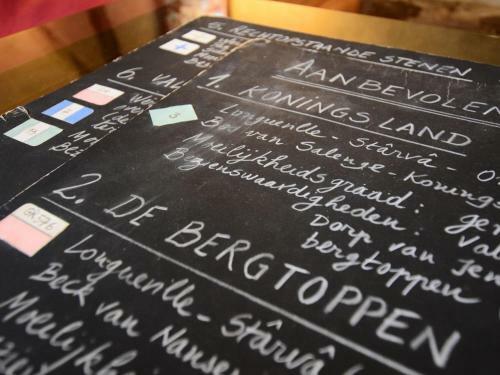 5. RECHTOPSTAANDE STENEN
AANBEVOLEN
1. KONINGSLAND
Longuenlle - Stârvâ -
Bad van Salenge - Konings
Moeilijkheidsgraad: ger
Bezienswaardigheden: Val
Dorp van Jen
bergtoppen
6. VAL
2. DE BERGTOPPEN
GR576
Longuenlle - Stârvâ
Beck van Nansen
Moeilijkhei